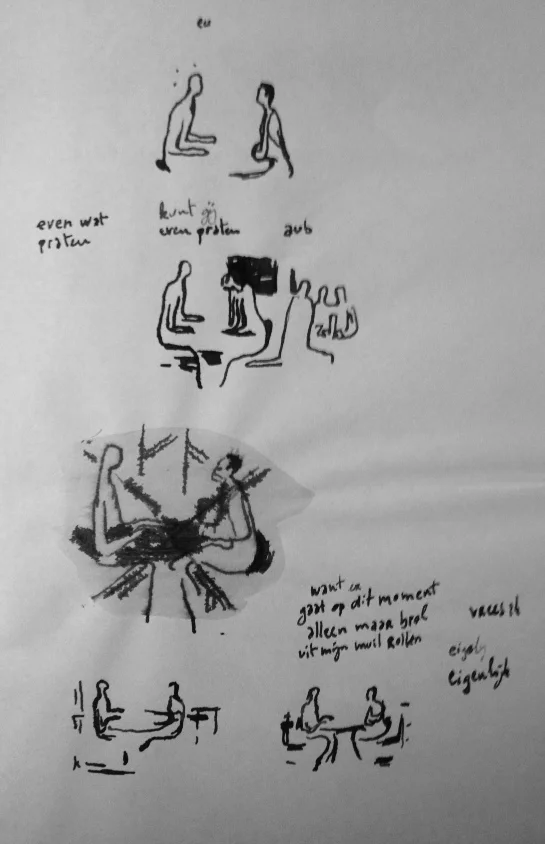 en
even wat
praten
kunt gij
even praten
aub
want er
gaat op dit moment
alleen maar brol
uit mijn muil rollen
vrees ik
eigenlijk